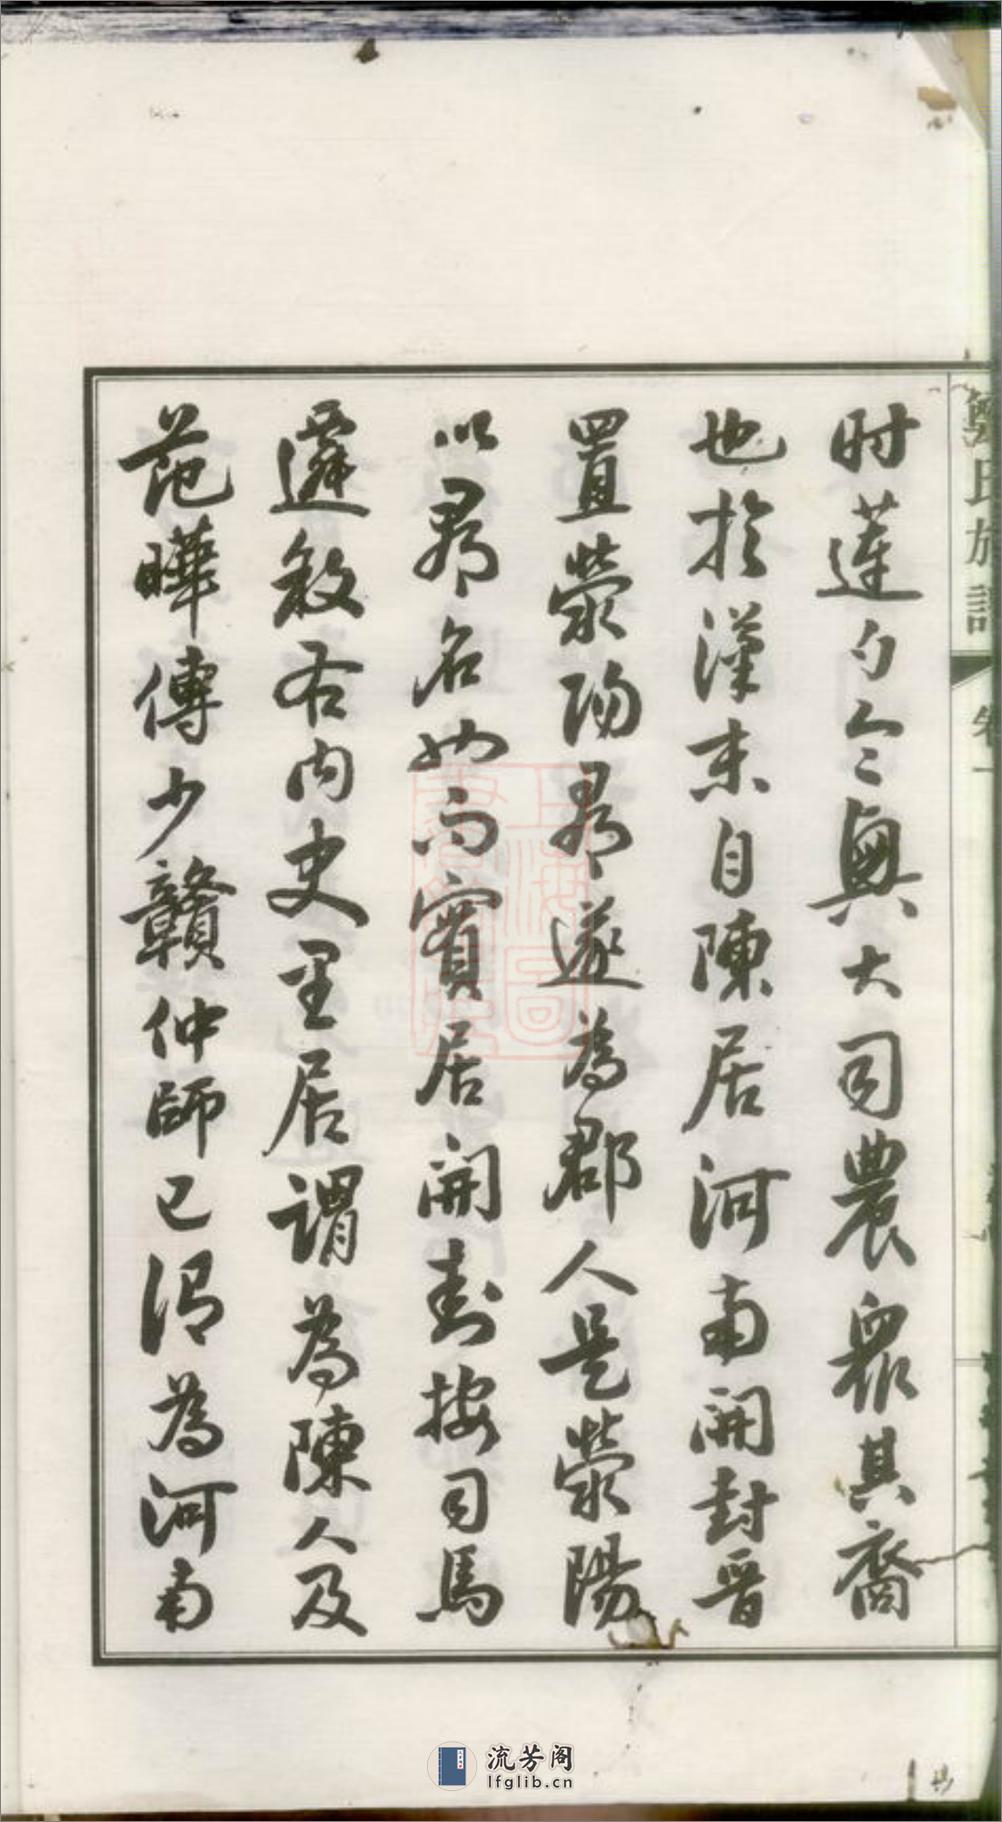 鄭氏族譜 卷一
时蓮勺令興大司農眾其裔
也於漢末自陳居河南開封晋
置滎陽郡遂為郡人是滎陽
以郡名而實居開封按司馬
遷敘右内史里居謂為陳人及
范曄傳少贛仲師已謂為河南
流芳阁
lfglib.cn